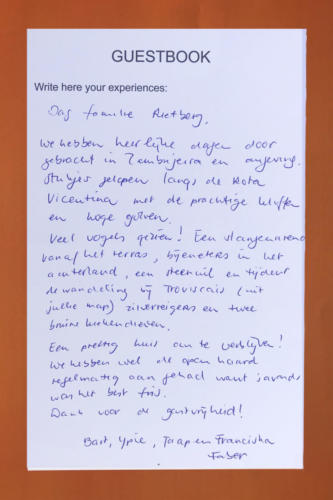 GUESTBOOK
Write here your experiences:
Dag familie Rietberg,
we hebben heerlijke dagen door
gebracht in Zambujeira en omgeving.
Stukjes gelopen langs de Rota
Vicentina met de prachtige kliffen
en hoge golven.
Veel vogels gezien! Een slangenarend
vanaf het terras, bijeneters in het
achterland, een steenuil en tijdens
de wandeling bij Troviscais (uit
jullie map) zilverreigers en twee
bruine kiekendieven.
Een prettig huis om te verblijven!
We hebben wel de open haard
regelmatig aan gehad want 's avonds
was het best fris.
Dank voor de gastvrijheid!
Bart, Ypie, Jaap en Franciska
Faber